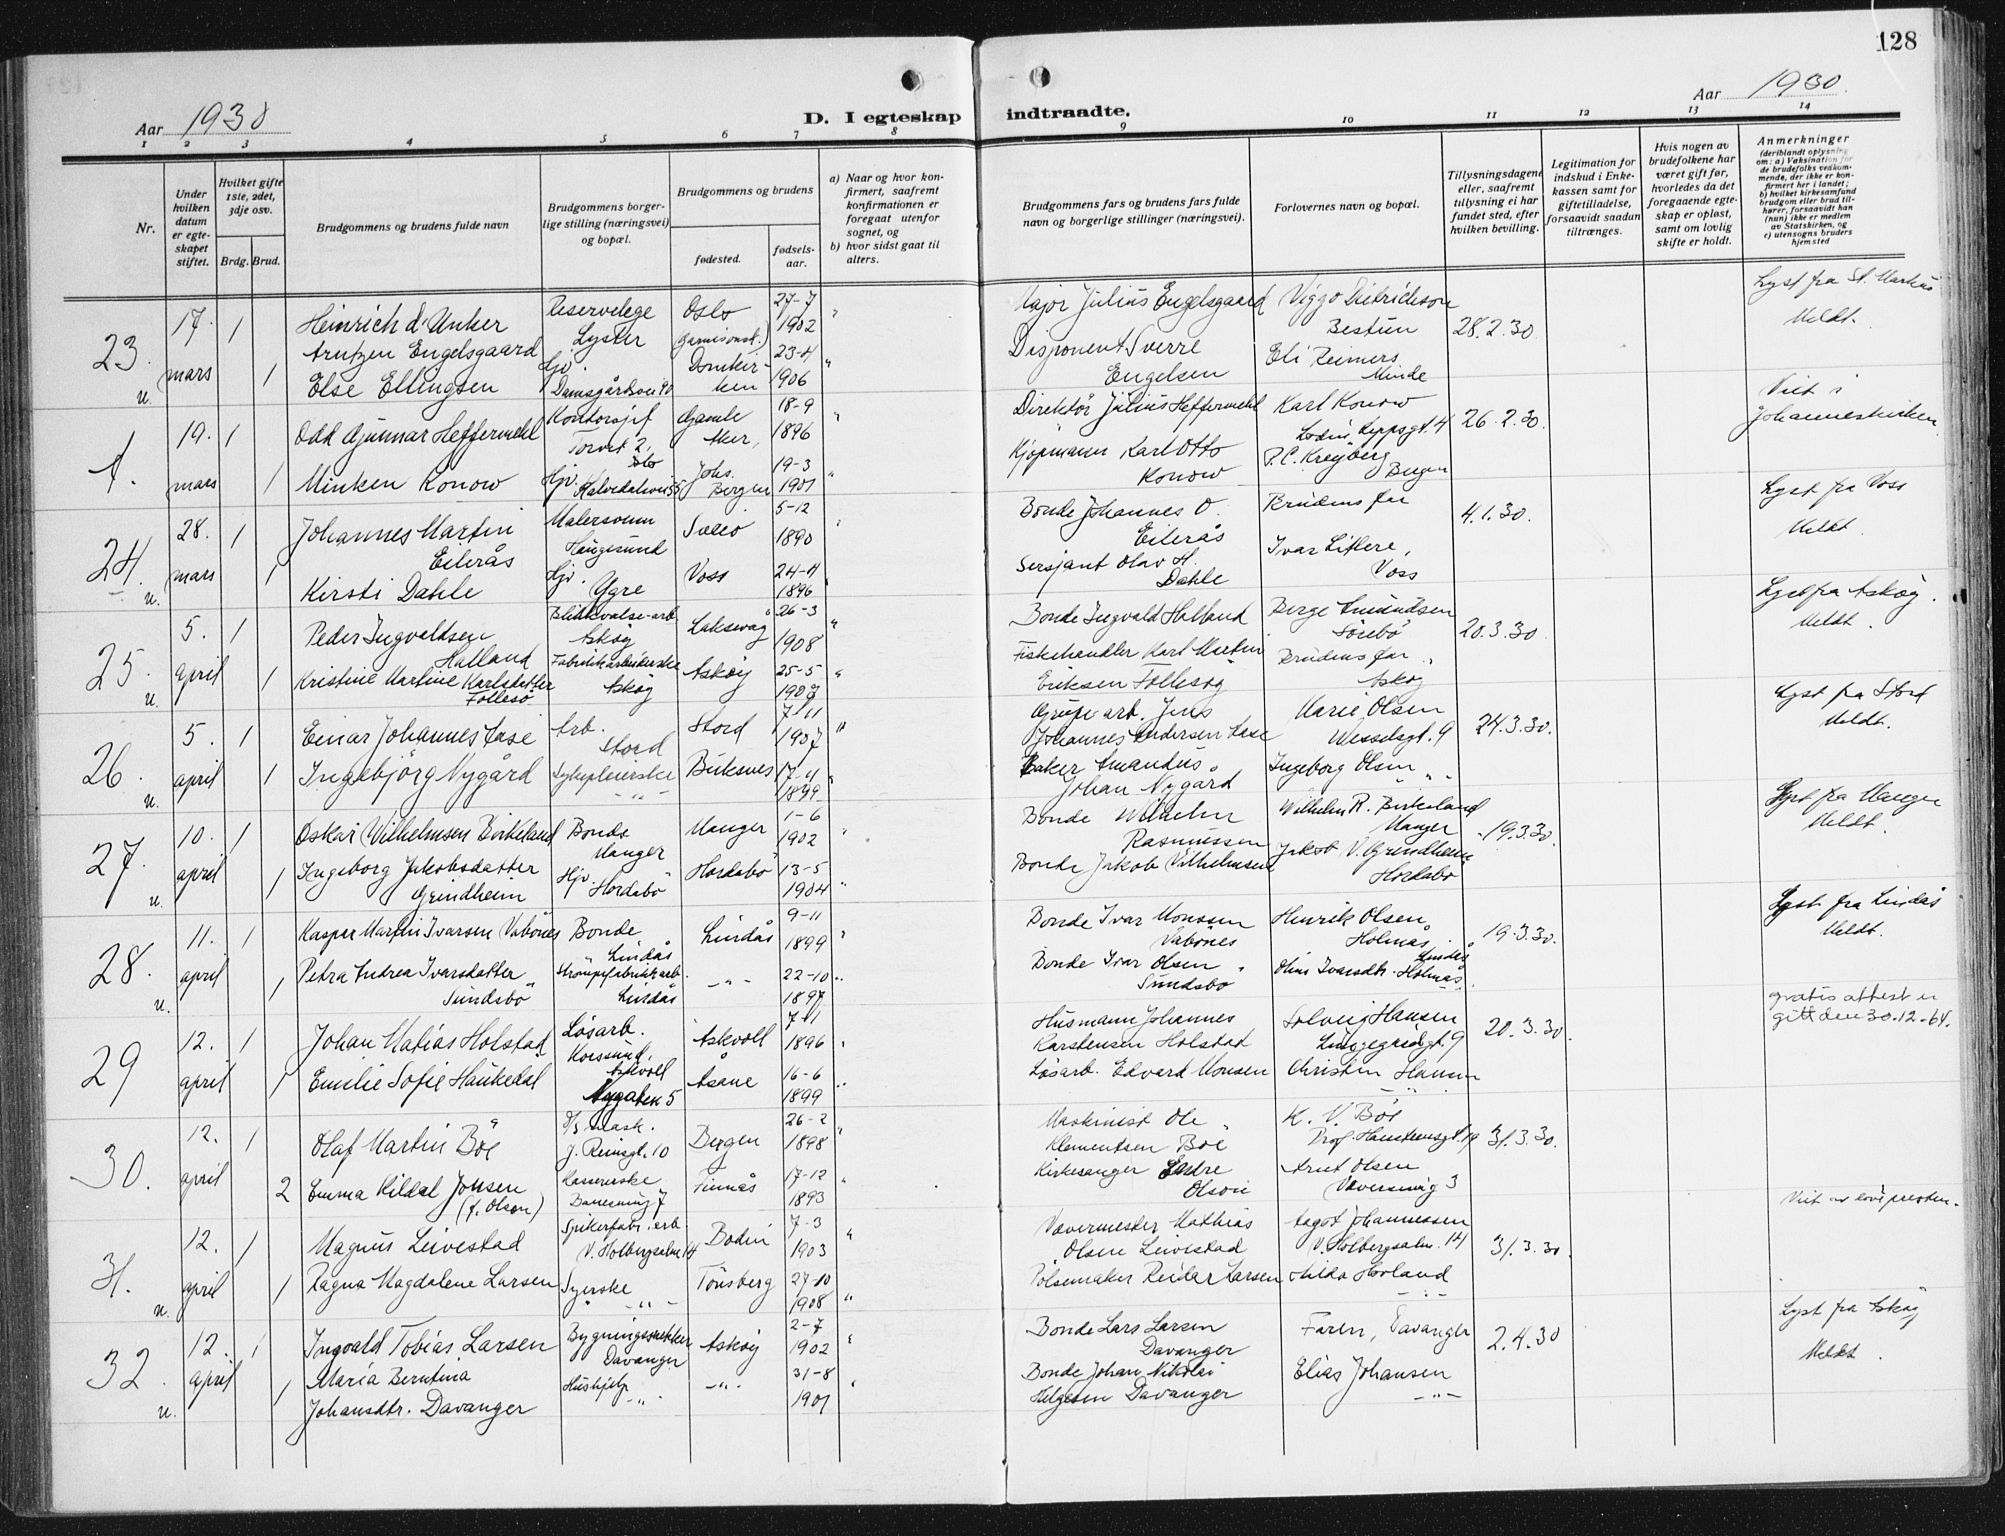 128
Aar 1930
D. I egteskap indtraadte.
Aar 1930
1 2 3 4 5 6 7 8 9 10 11 12 13 14
Nr.
Under hvilken datum er egteskapet stiftet.
Hvilket gifte 1ste, 2det, 3dje osv.
Brdg. Brud.
Brudgommens og brudens fulde navn
Brudgommens borgerlige stilling (næringsvei) og bopæl.
Brudgommens og brudens
fødested.
fødselsaar.
a) Naar og hvor konfirmert, saafremt konfirmationen er foregaat utenfor sognet, og
b) hvor sidst gaat til alters.
Brudgommens fars og brudens fars fulde navn og borgerlige stillinger (næringsvei).
Forlovernes navn og bopæl.
Tillysningsdagene eller, saafremt tillysning ei har fundet sted, efter hvilken bevilling.
Legitimation for indskud i Enkekassen samt for giftetilladelse, forsaavidt saadan tiltrænges.
Hvis nogen av brudefolkene har været gift før, hvorledes da det foregaaende egteskap er opløst, samt om lovlig skifte er holdt.
Anmerkninger
(deriblandt oplysning om: a) Vaksination for de brudefolks vedkommende, der ikke er konfirmert her i landet; b) hvilket kirkesamfund brudgom eller brud tilhører, forsaavidt han (hun) ikke er medlem av Statskirken, og c) utensogns bruders hjemsted
23. u. 17. mars 1 Heinrich d'Unker Arntzen Engelsgaard Reservelege Lyster Oslo (garnisonst.) 27-7 1902 " Major Julius Engelsgaard Viggo Dietrichson Bestun 28.2.30 Lyst fra St. Markus Meldt.
1 Else Ellingsen Hjv. Damsgårdsvei 90 Domkirken 23-4 1906 " Disponent Sverre Engelsen Eli Reimers Minde
19. mars 1 Odd Gunnar Heffermehl Kontorsjef Torvet 2, Oslo Gamle Aker, 18-9 1896 " Direktör Julius Heffermehl Karl Konow 26.2.30. Viet i Johanneskirken
1 Minken Konow Hjv. Kalvedalsvei 55 Johs. Bergen 19-3 1901 " Kjöpmann Karl Otto Konow P.C. Kreyberg Bergen
24. u. 28. mars 1 Johannes Martin Eilerås Malersvenn Haugesund 5-12 1890 " Bonde Johannes O. Eilerås Brudens far 4.1.30. Lyst fra Voss Meldt.
1 Kirsti Dahle Hjv. Ygre Voss 24-4 1896 " Sersjant Olav H. Dahle Ivar Liflere, Voss
25. u. 5. april 1 Peder Ingvaldsen Halland Blikkvalse-arb. Askøy Laksevåg 26-3 1908 " Bonde Ingvald Halland Berge Amundsen Sörebö 20.3.30. Lyst fra Askøy. Meldt.
1 Kristine Martine Karlsdatter Follesö Fabrikkarbeiderske Askøy Askøy 25-5 1907 " Fiskehandler Karl Martin Eriksen Follesøy Brudens far Askøy
26. u. 5. april 1 Einar Johannes Aase Arb. Stord Stord 7-11 1907 " Grubearb. Jens Johannes Andersen Aase Marie Olsen Wesselsgt. 9 24.3.30. Lyst fra Stord Meldt.
1 Ingebjörg Nygård Sykepleierske -"- Buksnes 17-4 1899 " Baker Amandus Johan Nygård Ingeborg Olsen " "
27. u. 10. april 1 Oskar Vilhelmsen Birkeland Bonde Manger Manger 1-6 1902 " Bonde Wilhelm Rasmussen Wilhelm R. Birkeland Manger 19.3.30. Lyst fra Manger Meldt.
1 Ingeborg Jakobsdatter Grindheim Hjv. Hordabö Hordabö 13-5 1904 " Bonde Jakob Vilhelmsen Jakob V. Grindheim Hordabö
28. u. 11. april 1 Kaspar Martin Ivarsen Vabönes Bonde Lindås Lindås 9-11 1899 " Bonde Ivar Monssen Vabönes Henrik Olsen Holmås Lindås 19.3.30. Lyst fra Lindås Meldt.
1 Petra Andrea Ivarsdatter Sundsbö Strömpefabrikkarb. Lindås -"- 22-10 1897 " Bonde Ivar Olsen Sundsbö Olina Ivarsdtr. Holmås
29 12. april 1 Johan Matias Holstad Lösarb. Korssund, Askvoll Askvoll 7-1 1896 " Husmann Johannes Karstensen Holstad Solveig Hansen 20.3.30. gratis attest er gitt den 30.12-64.
1 Emilie Sofie Haukedal Nygaten 5 Åsane 16-6 1899 " Lösarb. Edvard Monsen Christin Hansen -"-
30. 12. april 1 Olaf Martin Böe D/S mask. J. Reinsgt. 10 Bergen 26-2 1898 " Maskinist Ole Klementsen Böe K. V. Böe Prof. Hansteensgt. 19 31.3.30.
2 Emma Kildal Jonsen (f. Olson) Kassererske Finnås 17-12 1893 " Kirkesanger Endre Olson Arnt Olsen 3 Viet av lövepresten.
31. u. 12. april 1 Magnus Leivestad Spikerfabr. arb. V. Holbergsalm. 14 Bodin 7-3 1903 " Vævermester Mathias Olsen Leivestad Aagot Johannessen V. Holbergsalm. 14 31.3.30.
1 Ragna Magdalene Larsen Syerske -"- Tönsberg 27-10 1908 " Pölsemaker Reidar Larsen Hilda Hovland -"-
32. u. 12. april 1 Ingvald Tobias Larsen Bygningssnekker Davanger Askøy 2-7 1902 " Bonde Lars Larsen Davanger Faren, Davanger 2.4.30 Lyst fra Askøy Meldt.
1 Maria Berntina Johansdtr. Davanger Hushjelp " -"- 31-8 1901 " Bonde Johan Nikolai Helgesen Davanger Elias Johansen -"-